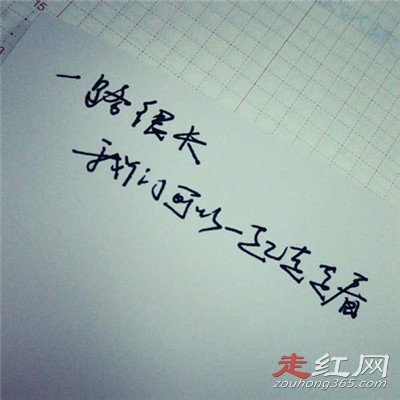 15
一路很长
我们可以一起走走看
走红网
zouhong365.com